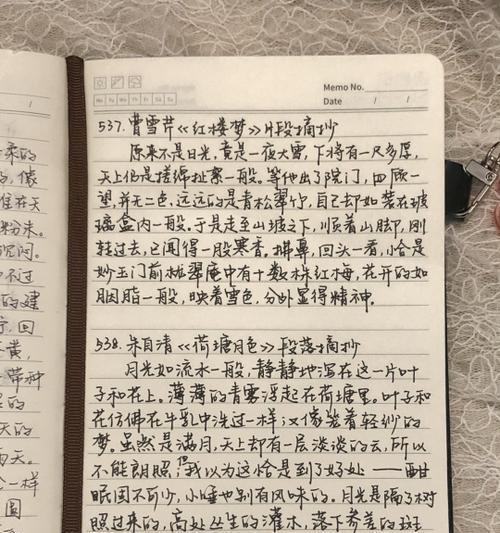 /
柔的
像
谁在天
不过
的建
回
黄,
带种
的
天的
雨天。
一样
Memo No.
Mo Tu We Th Fr Sa Su
Date / /
537. 曹雪芹《红楼梦》片段摘抄
原来不是日光,竟是一夜大雪,下将有一尺多厚,
天上仍是搓绵扯絮一般。等他出了院门,四顾一
望,并无二色,远远的是青松翠竹,自己却如装在玻
璃盒内一般。于是走至山坡之下,顺着山脚,刚
转过去,已闻得一股寒香,拂鼻,回头一看,恰是
妙玉门前栊翠庵中有十数株红梅,花开的如
胭脂一般,映着雪色,分外显得精神。
538. 朱自清《荷塘月色》段落摘抄
月光如流水一般,静静地泻在这一片叶
子和花上。薄薄的青雾浮起在荷塘里。叶子和
花仿佛在牛乳中洗过一样;又像笼着轻纱的
梦。虽然是满月,天上却有一层淡淡的云,所以
不能朗照;但我以为这恰是到了好处——酣
眠固不可少,小睡也别有风味的。月光是隔了树
照过来的,高处丛生的灌木,落下参差的斑